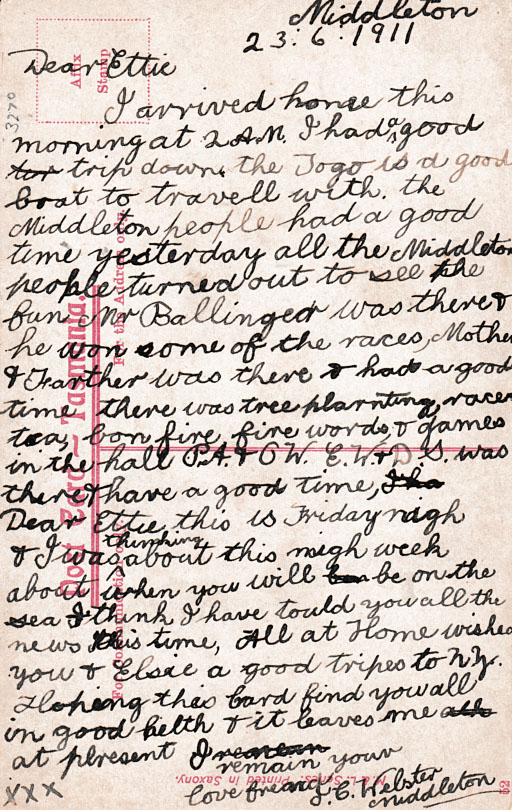 Middleton
23.6.1911
Dear Ettie
I arrived home this
morning at 2 A.M. I had a good
tor trip down, the Togo is a good
boat to travell with. the
Middleton people had a good
time yesterday all the Middleton
people turned out to see the
fun Mr Ballinger was there &
he won some of the races, Mother
& Farther was there & had a good
time there was tree planting, races
tea, bon fire, fire words & games
in the hall P.A. & C W. E. W. & D S. was
there & have a good time, I ha
Dear Ettie, this is Friday nigh
& I was thinking about this nigh week
about when you will be on the
sea I think I have tould you all the
news this time, All at Home wished
you & Elsie a good tripes to N.Z.
Hopeing this card find you all
in good helth & it leaves me
at plresent I
remain your
love freand
J. C. Webster
Middleton
XXX
3270
Affix
Stamp
Post Card — Tasmania.
For the Address only.
For Communication
M. & L. Series. Printed in Saxony.
52